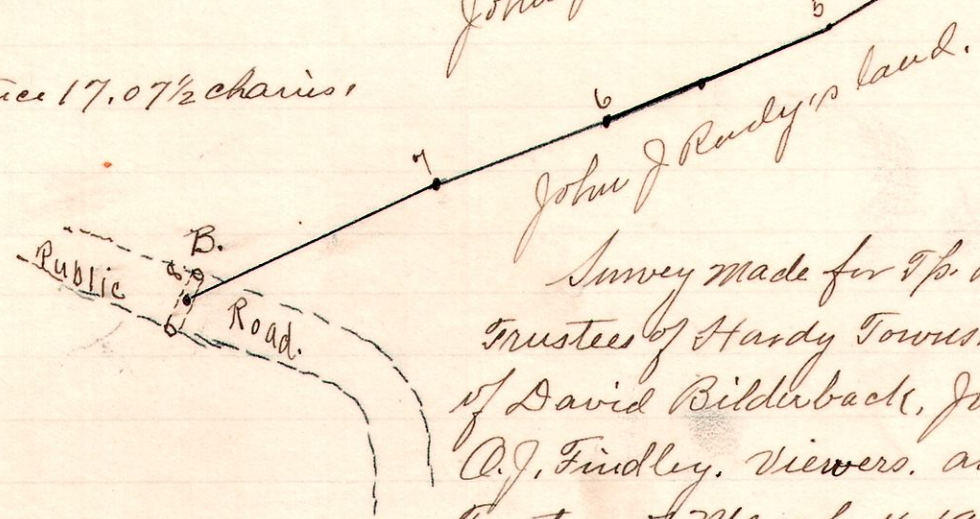 John
5
17.07½ chains.
6
John J
land.
7
B.
8
9
Public
Road.
6
Survey made for Tp.
Trustees of Hardy Towns
of David Bilderback, J
O.J. Findley. Viewers. a